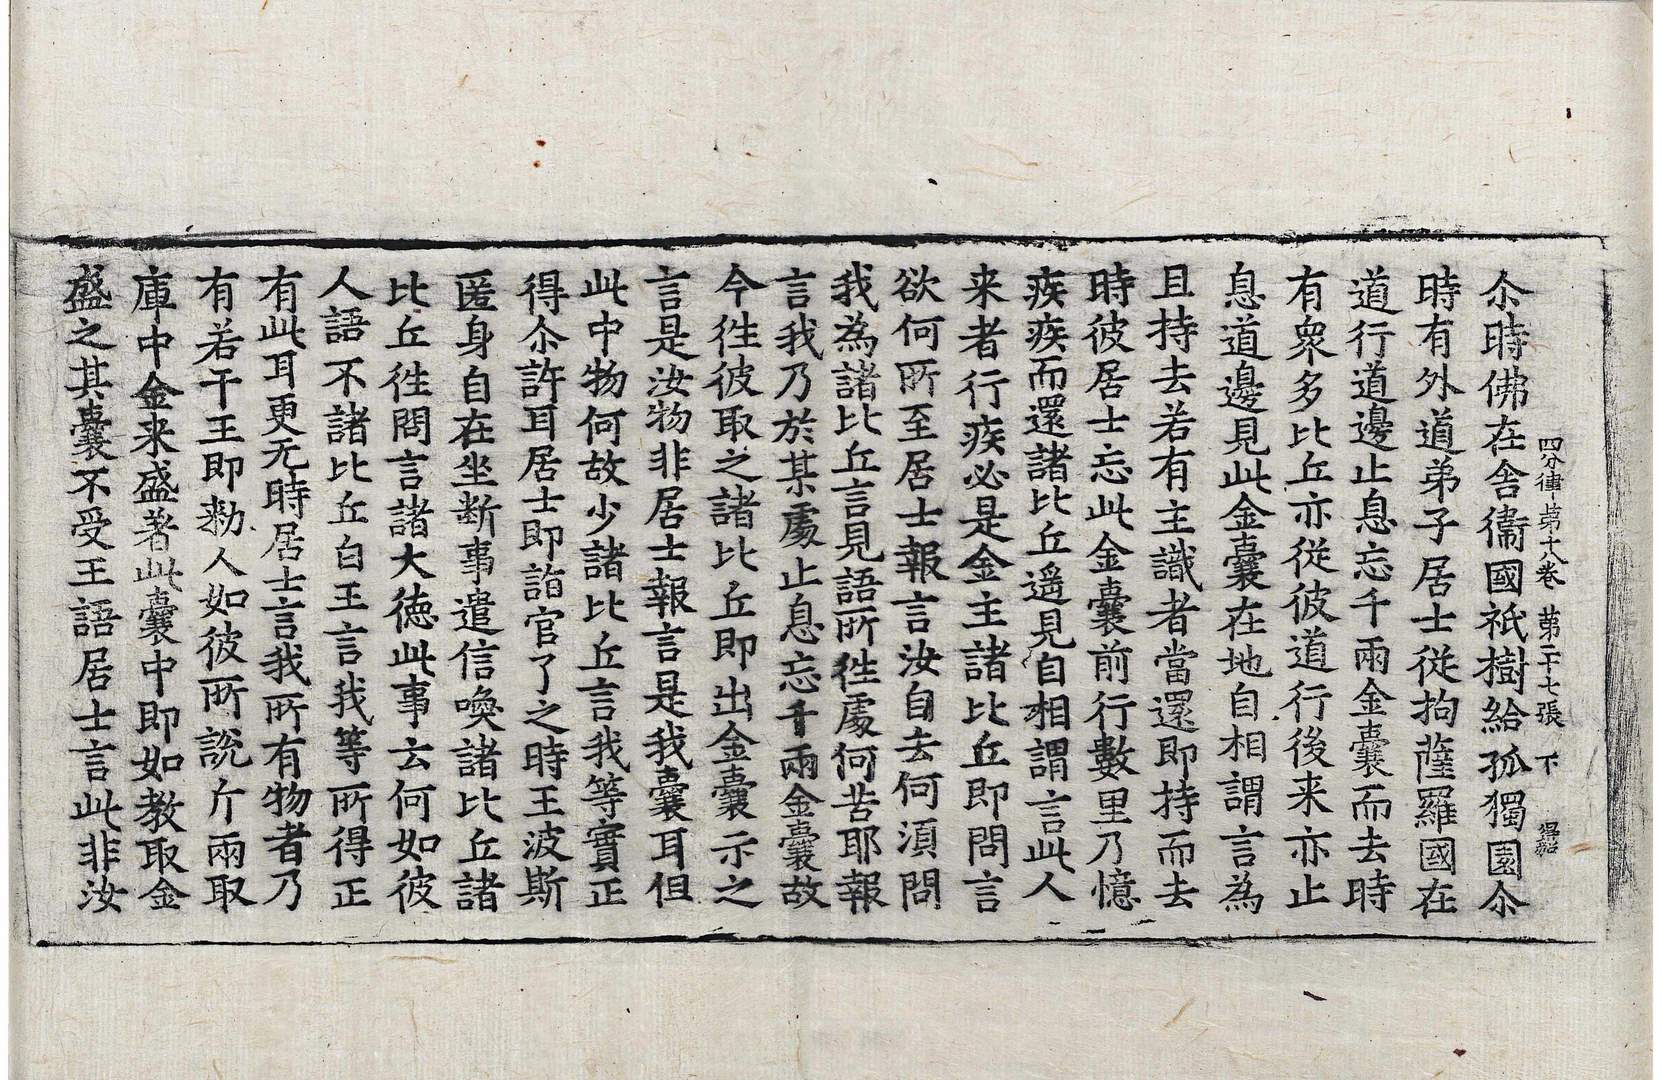 四分律第十八卷 第二十七張 下
尒時佛在舍衞國祇樹給孤獨園尒
時有外道弟子居士從拘薩羅國在
道行道邊止息忘千兩金囊而去時
有衆多比丘亦從彼道行後来亦止
息道邊見此金囊在地自相謂言為
且持去若有主識者當還即持而去
時彼居士忘此金囊前行數里乃憶
疾疾而還諸比丘遥見自相謂言此人
来者行疾必是金主諸比丘即問言
欲何所至居士報言汝自去何須問
我為諸比丘言見語所徃處何苦耶報
言我乃於某處止息忘千兩金囊故
今徃彼取之諸比丘即出金囊示之
言是汝物非居士報言是我囊耳但
此中物何故少諸比丘言我等實正
得尒許耳居士即詣官了之時王波斯
匿身自在坐斷事遣信喚諸比丘諸
比丘徃問言諸大徳此事云何如彼
人語不諸比丘白王言我等所得正
有此耳更无時居士言我所有物者乃
有若干王即勑人如彼所說斤兩取
庫中金来盛著此囊中即如教取金
盛之其囊不受王語居士言此非汝